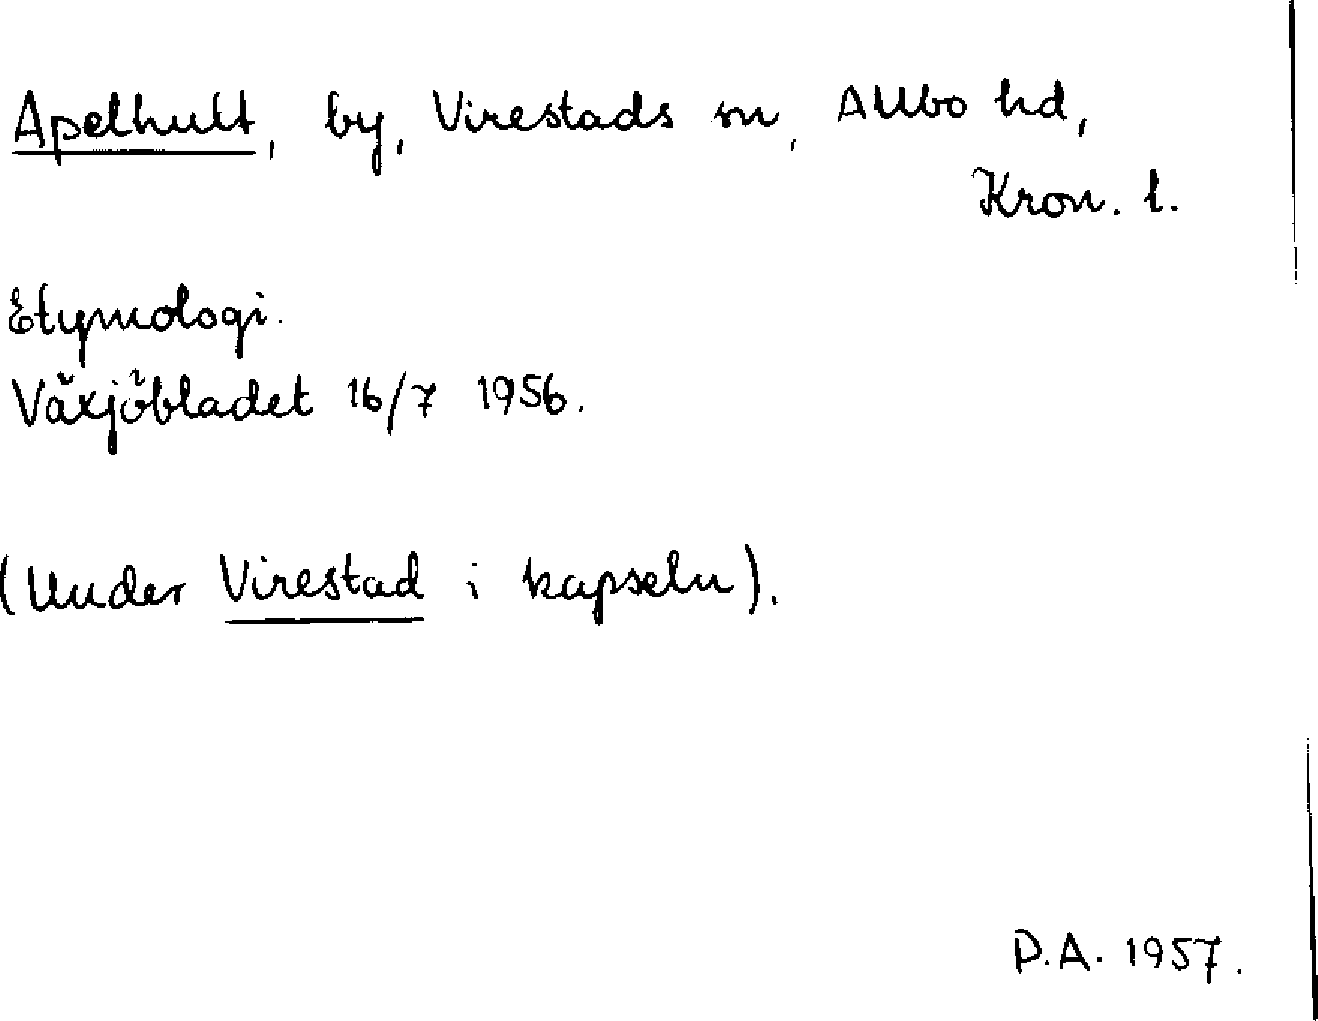 Apelhult, by, Virestads sn, Allbo hd,
Kron. l.
Etymologi.
Växjöbladet 16/7 1956.
(Under Virestad i kapseln).
P.A. 1957.